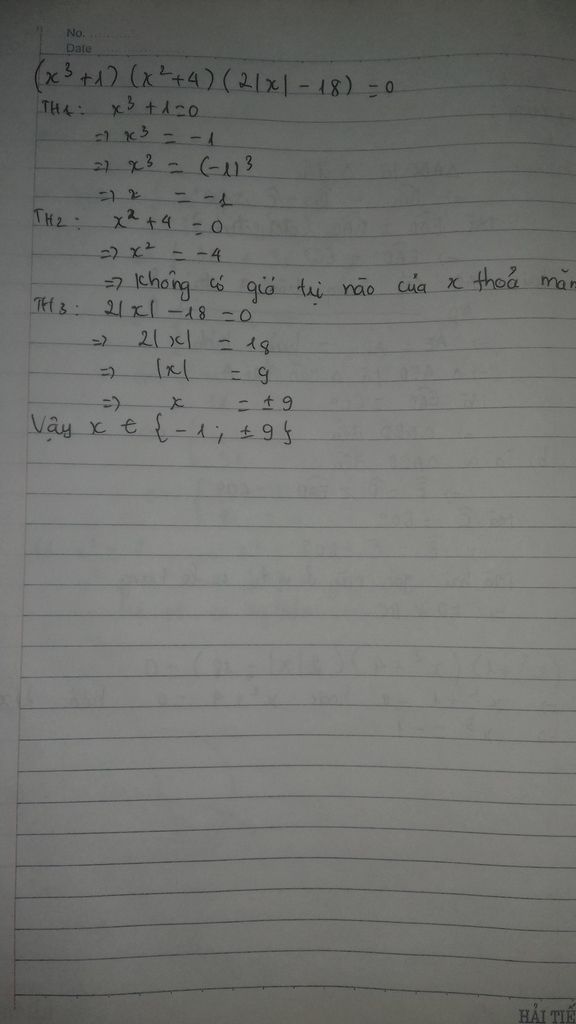 No. ............
Date
(x³+1)(x²+4)(2|x|-18)=0
TH1: x³+1=0
=> x³ = -1
=> x³ = (-1)³
=> x = -1
TH2: x²+4 =0
=> x² = -4
=> Không có giá trị nào của x thoả mãn
TH3: 2|x| -18 =0
=> 2|x| = 18
=> |x| = 9
=> x = ±9
Vậy x ∈ {-1; ±9}
HẢI TIẾ